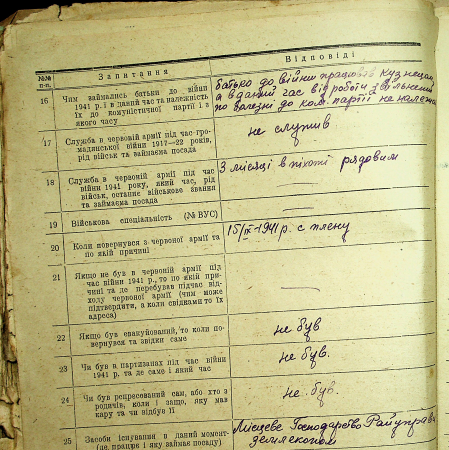 №№ п-п.
Запитання
Відповіді
16
Чим займались батьки до війни
1941 р. і в даний час та належність
їх до комуністичної партії і з
якого часу
батько до війни працював кузнецом
а в даний час від роботи звільнений
по болезні до ком. партії не належа
17
Служба в червоній армії під час гро-
мадянської війни 1917—22 років,
рід військ та займаєма посада
не служив
18
Служба в червоній армії під час
війни 1941 року, який час, рід
військ, останнє військове звання
та займаєма посада
3 місяці в піхоті рядовим
19
Військова спеціальність (№ ВУС)
20
Коли повернувся з червоної армії та
по якій причині
15/IX-1941 р. с плену
21
Якщо не був в червоній армії під
час війни 1941 р., то по якій при-
чині та де перебував підчас від-
ходу червоної армії (чим може
підтвердити, а коли свідками то їх
адреса)
22
Якщо був евакуйований, то коли по-
вернувся та звідки саме
не був
23
Чи був в партизанах під час війни
1941 р. та де саме і який час
не був.
24
Чи був репресований сам, або хто з
родичів, коли і защо, яку мав
кару та чи відбув її
не був.
25
Засоби існування в даний момент
(де працює і яку займає посаду)
Місцеве Господарство Райуправ
землекопом